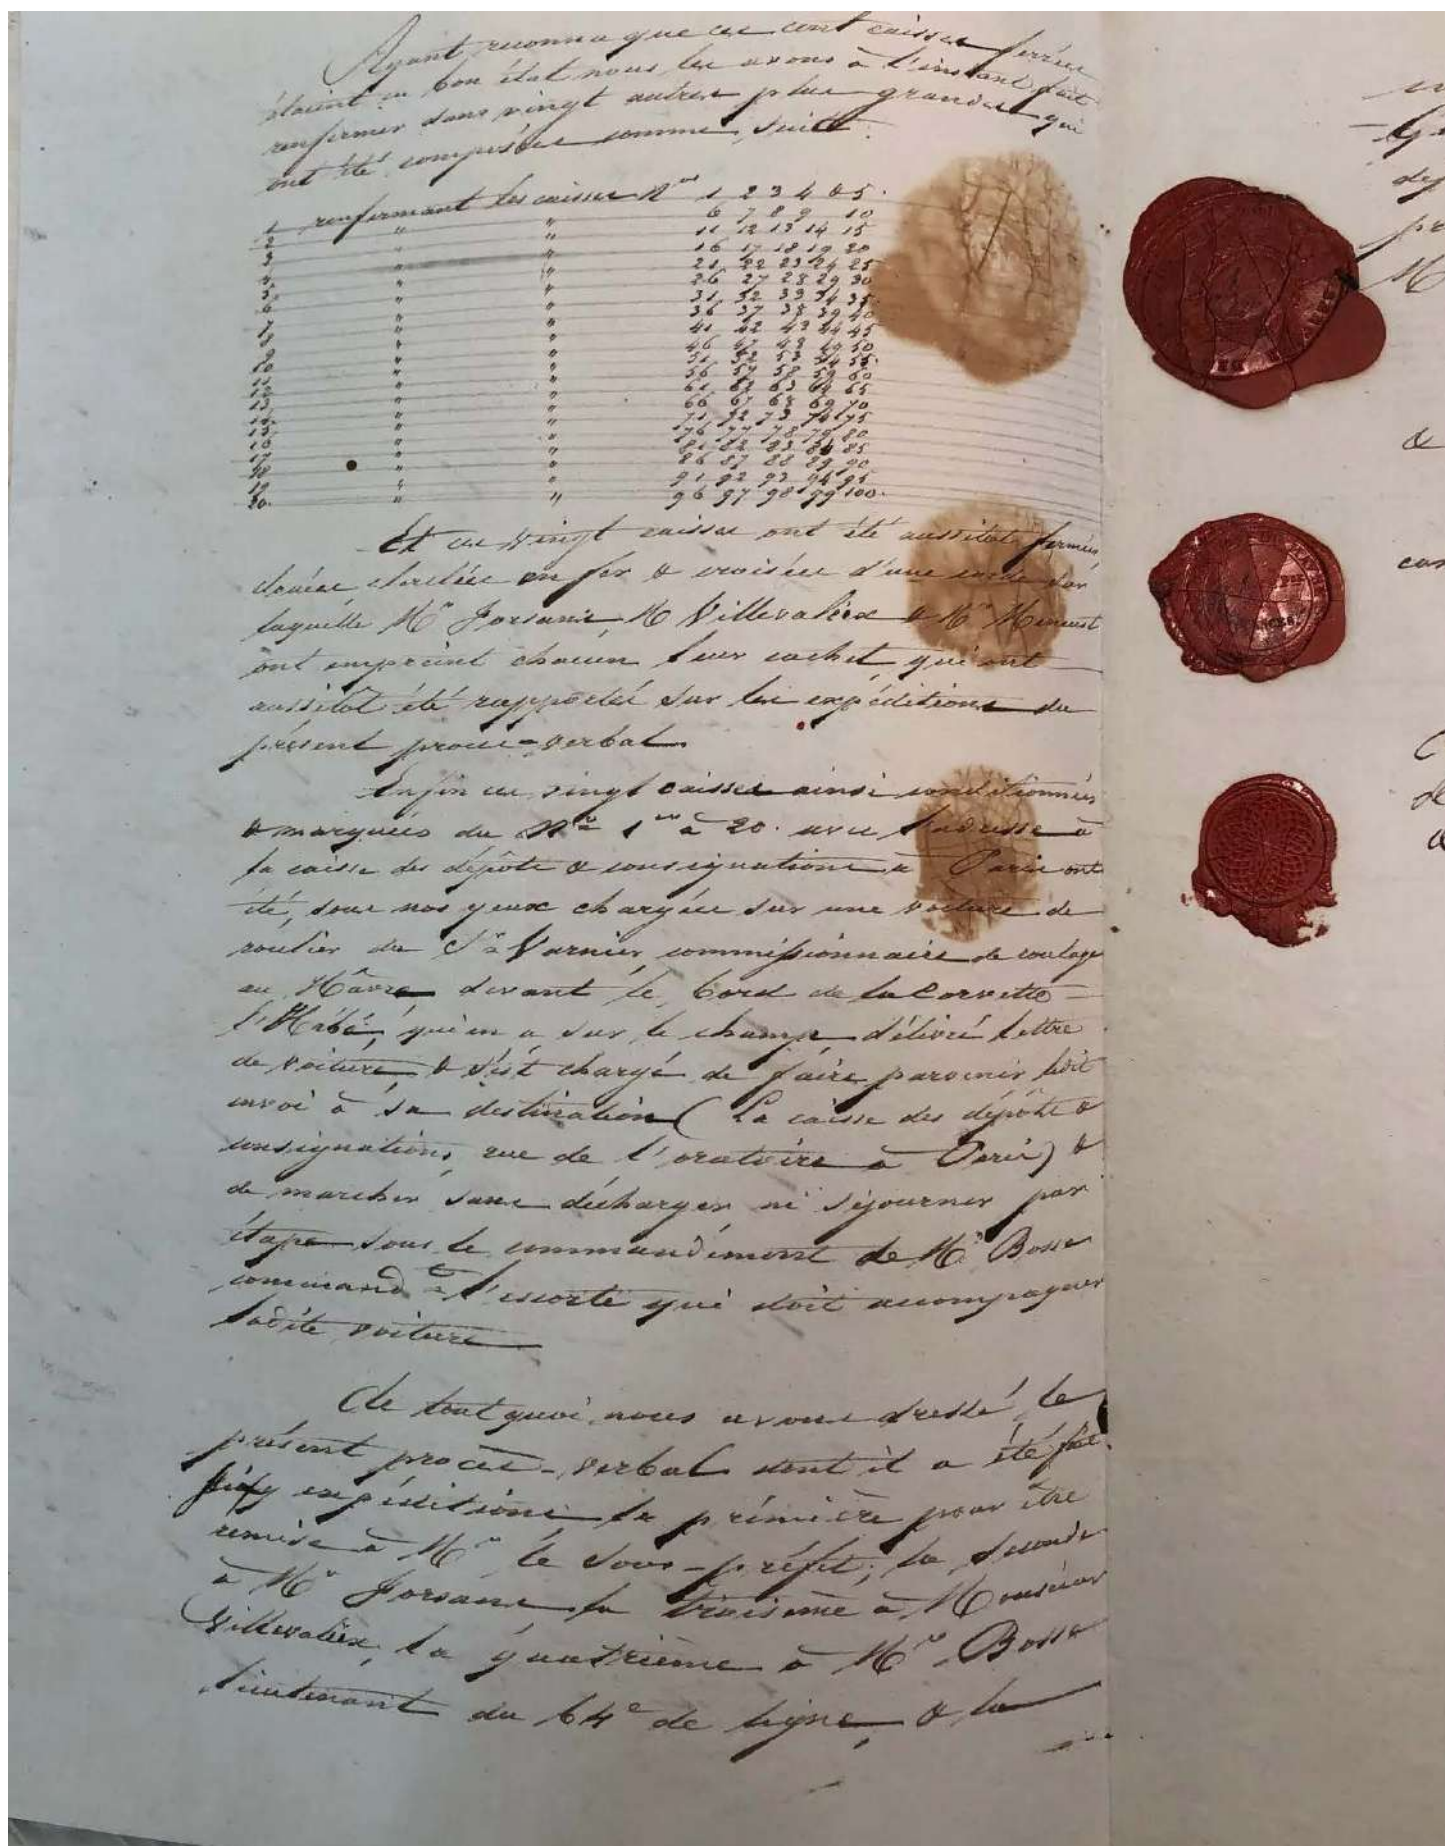 Ayant reconnu que ces cent caisses ferrées
étaient en bon état nous les avons à l'instant fait
renfermer dans vingt autres plus grandes qui
ont été composées comme suit.
1 renfermant les caisses Nos 1 2 3 4 & 5.
2 " " 6 7 8 9 10
3 " " 11 12 13 14 15
4 " " 16 17 18 19 20
5 " " 21 22 23 24 25
6 " " 26 27 28 29 30
7 " " 31 32 33 34 35
8 " " 36 37 38 39 40
9 " " 41 42 43 44 45
10 " " 46 47 48 49 50
11 " " 51 52 53 54 55
12 " " 56 57 58 59 60
13 " " 61 62 63 64 65
14 " " 66 67 68 69 70
15 " " 71 72 73 74 75
16 " " 76 77 78 79 80
17 " " 81 82 83 84 85
18 " " 86 87 88 89 90
19 " " 91 92 93 94 95
20. " " 96 97 98 99 100.
Et ces vingt caisses ont été aussitôt fermées
clouées cerclées en fer & croisées d'une corde sur
laquelle Mr Forsans, M Villevaleix & Mr
ont empreint chacun leur cachet qui ont
aussitôt été rapportés sur les expéditions du
présent procès-verbal.
Enfin ces vingt caisses ainsi conditionnées
& marquées du Nos 1er à 20. avec l'adresse à
la caisse des dépôts & consignations à Paris ont
été, sous nos yeux chargées sur une voiture de
roulier du Sr Varnier commissionnaire de roulage
au Hâvre devant le bord de la Corvette
l'Hébé, qui en a sur le champ délivré lettre
de voiture & s'est chargé de faire parvenir ledit
envoi à sa destination (La caisse des dépôts &
consignations, rue de l'oratoire à Paris) &
de marcher sans décharger ni séjourner par
étape sous le commandement de Mr Bosse
command.t l'escorte qui doit accompagner
ladite voiture
De tout quoi nous avons dressé le
présent procès-verbal dont il a été fait
expéditions la première pour être
remise à Mr le sous-préfet; la seconde
à Mr Forsans la troisième à Monsieur
Villevaleix, la quatrième à Mr Bosse
lieutenant du 64e de ligne, & la